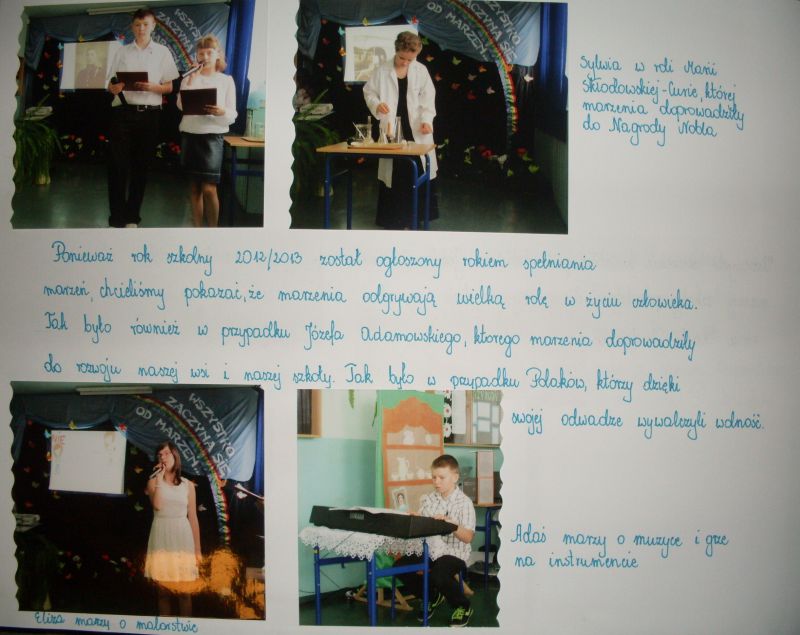 WSZYSTKO
ZACZYNA SIĘ
OD MARZEŃ...
ZACZYNA SIĘ
OD MARZEŃ...
Sylwia w roli Marii
Skłodowskiej-Curie, której
marzenia doprowadziły
do Nagrody Nobla
Ponieważ rok szkolny 2012/2013 został ogłoszony rokiem spełniania
marzeń, chcieliśmy pokazać, że marzenia odgrywają wielką rolę w życiu człowieka.
Tak było również w przypadku Józefa Adamowskiego, ktorego marzenia doprowadziły
do rozwoju naszej wsi i naszej szkoły. Tak było w przypadku Polaków, którzy dzięki
swojej odwadze wywalczyli wolność.
WSZYSTKO
ZACZYNA SIĘ
OD MARZEŃ...
YAMAHA
Adaś marzy o muzyce i grze
na instrumencie
Eliza marzy o malarstwie